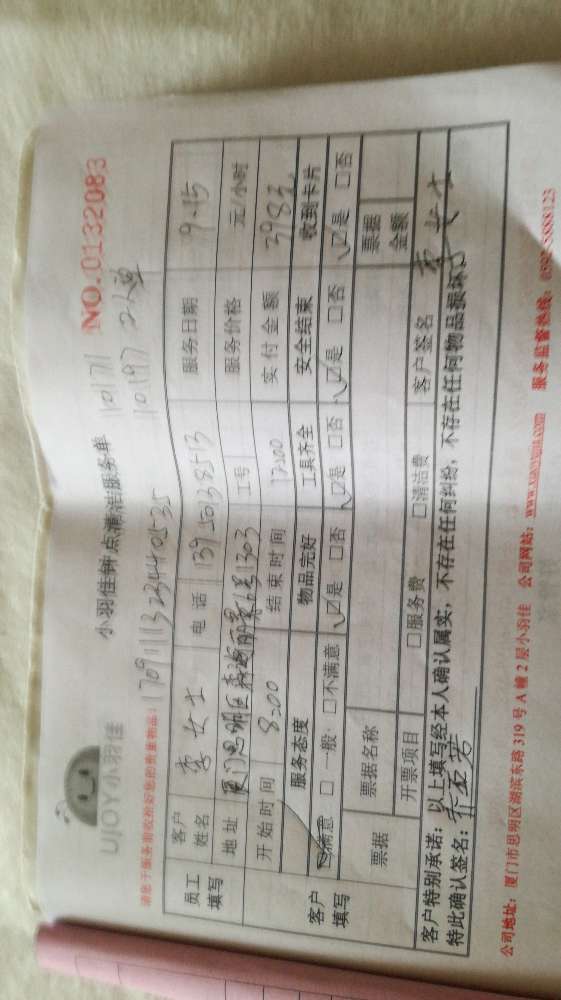 UJOY小羽佳
小羽佳钟点清洁服务单
NO.0132083
请您于服务前收拾好您的贵重物品!
170911132344 0535
110171
110197 2人单
员工填写
客户姓名 李女士 电话 13950138513 服务日期 9.15
地址 厦门思明区 1303 工号 服务价格 元/小时
开始时间 8:00 结束时间 12:00 实付金额 398元
客户填写
服务态度 物品完好 工具齐全 安全结束 收到卡片
☑满意 □一般 □不满意 ☑是 □否 ☑是 □否 ☑是 □否 ☑是 □否
票据 票据名称 票据金额
开票项目 □服务费 □清洁费 客户签名 李女士
客户特别承诺:以上填写经本人确认属实,不存在任何纠纷,不存在任何物品损坏。
特此确认签名:
公司地址:厦门市思明区湖滨东路319号A幢2层小羽佳 公司网站:www.xiaoyujia.com 服务监督热线:0592-5888123